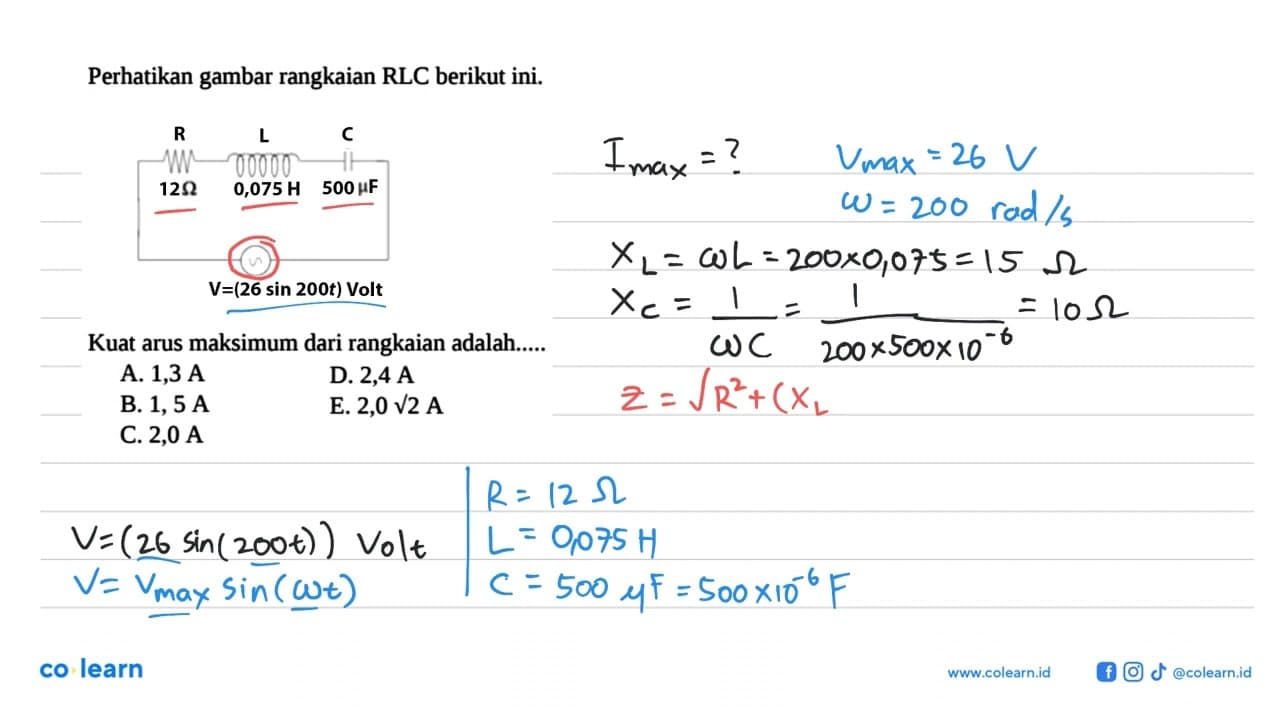 Perhatikan gambar rangkaian RLC berikut ini.
R L C
12Ω 0,075 H 500 μF
V=(26 sin 200t) Volt
Kuat arus maksimum dari rangkaian adalah.....
A. 1,3 A D. 2,4 A
B. 1, 5 A E. 2,0 √2 A
C. 2,0 A
Imax = ? Vmax = 26 V
ω = 200 rad/s
XL = ωL = 200×0,075 = 15 Ω
XC = 1/ωC = 1/200×500×10⁻⁶ = 10 Ω
Z = √R²+(XL
V=(26 sin(200t)) Volt
V= Vmax sin(ωt)
R = 12 Ω
L = 0,075 H
C = 500 μF = 500×10⁻⁶ F
co learn
www.colearn.id @colearn.id